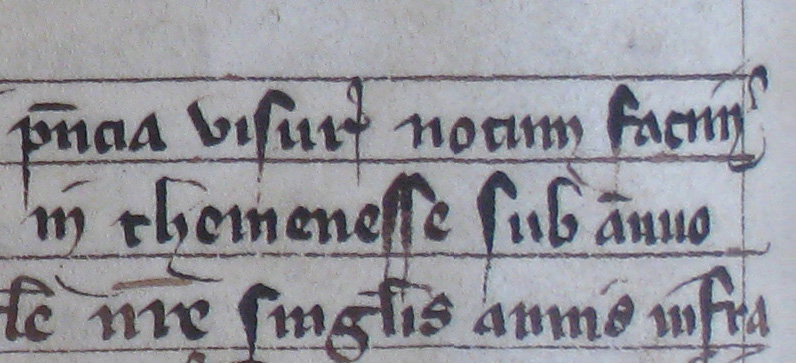 p̄ncia visur notum facim⁹
in themenesse sub ānuo
le nr̄e singlis annis infra